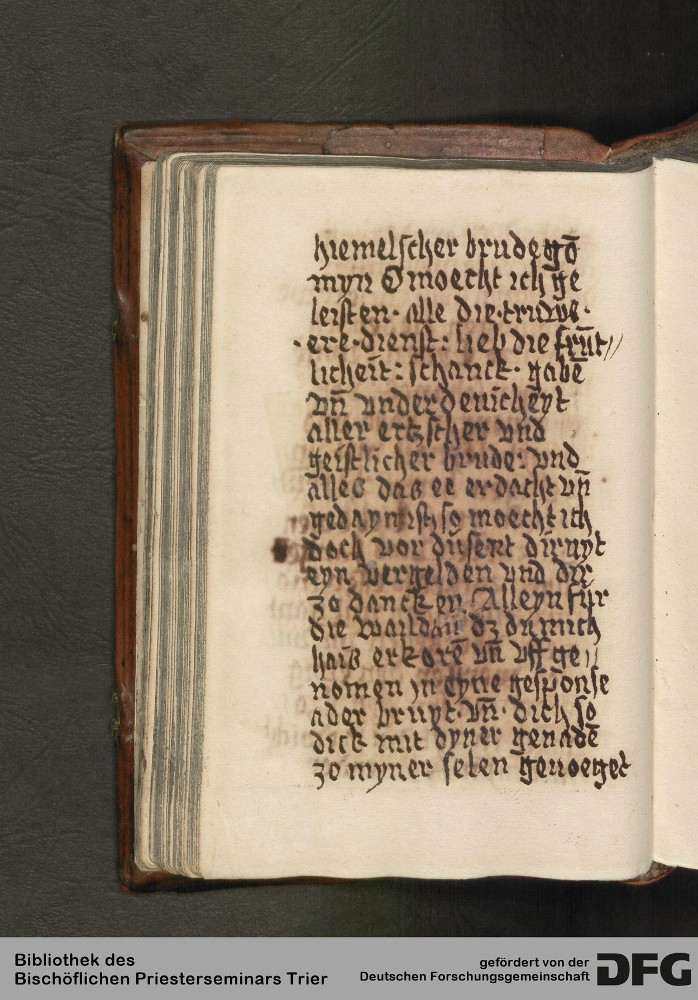 hiemelscher brudegō
myn O moecht ich ge
leisten· alle die·truwe·
·ere·dienst: lieb die frūt//
licheit: schanck· gabē
vn̄ vnderdenicheyt
aller ertzscher vnd
geistlicher brude: vnd
alles das ee erdacht vn̄
gedayn ist; so moecht ich
doch vor dusent dinuyt
eyn vergelden vnd dir
zo dancken Alleyn fur
die waildait dz du mich
hais erkorē vn̄ vff ge//
nomen in eyne gesponse
ader bruyt· vn̄· dich so
dick mit dyner genadē
zo myner selen genoeget
Bibliothek des
Bischöflichen Priesterseminars Trier
gefördert von der
Deutschen Forschungsgemeinschaft
DFG